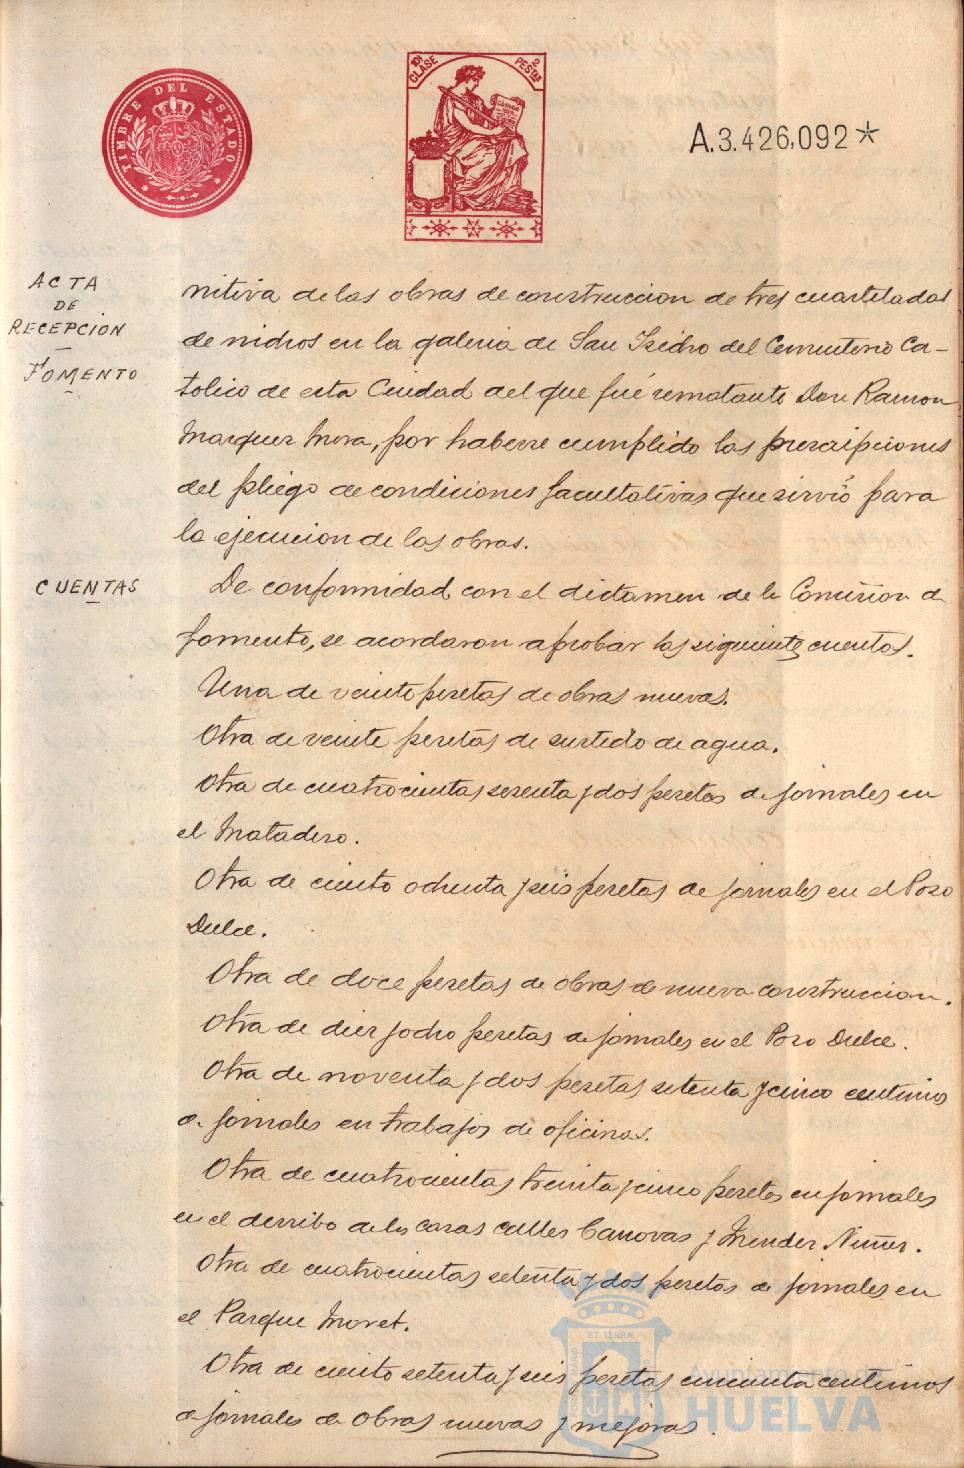 TIMBRE DEL ESTADO
10ª CLASE 2 PESTAS
CODIGO
A.3.426,092*
ACTA
DE
RECEPCION
—
FOMENTO
nitiva de las obras de construccion de tres cuarteladas
de nichos en la galeria de San Isidro del Cementerio Ca-
tolico de esta Ciudad del que fué rematante Don Ramon
Marquez Mora, por haberse cumplido las prescripciones
del pliego de condiciones facultativas que sirvió para
la ejecucion de las obras.
CUENTAS
De conformidad con el dictamen de la Comision de
fomento, se acordaron aprobar las siguientes cuentas.
Una de veinte pesetas de obras nuevas.
Otra de veinte pesetas de surtido de agua.
Otra de cuatrocientas sesenta y dos pesetas de jornales en
el Matadero.
Otra de ciento ochenta y seis pesetas de jornales en el Pozo
Dulce.
Otra de doce pesetas de obras de nueva construccion.
Otra de diez y ocho pesetas de jornales en el Pozo Dulce.
Otra de noventa y dos pesetas setenta y cinco centimos
de jornales en trabajos de oficinas.
Otra de cuatrocientas treinta y cinco pesetas en jornales
en el derribo de las casas calles Canovas y Mendez Nuñez.
Otra de cuatrocientas setenta y dos pesetas de jornales en
el Parque Moret.
Otra de ciento setenta y seis pesetas cincuenta centimos
de jornales de obras nuevas y mejoras.
ET TERRÆ
Ayuntamiento de
HUELVA